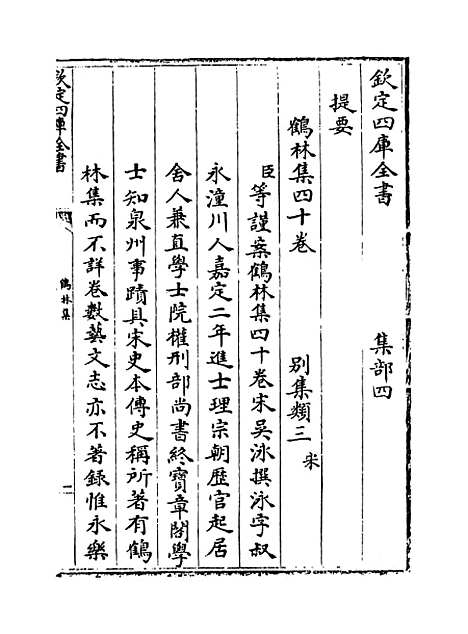 欽定四庫全書 集部四
提要
鶴林集四十卷 别集類三 宋
臣等謹案鶴林集四十卷宋吳泳撰泳字叔
永潼川人嘉定二年進士理宗朝歴官起居
舍人兼直學士院權刑部尚書終寳章閣學
士知泉州事蹟具宋史本傳史稱所著有鶴
林集而不詳卷數藝文志亦不著録惟永樂
欽定四庫全書
鶴林集
一